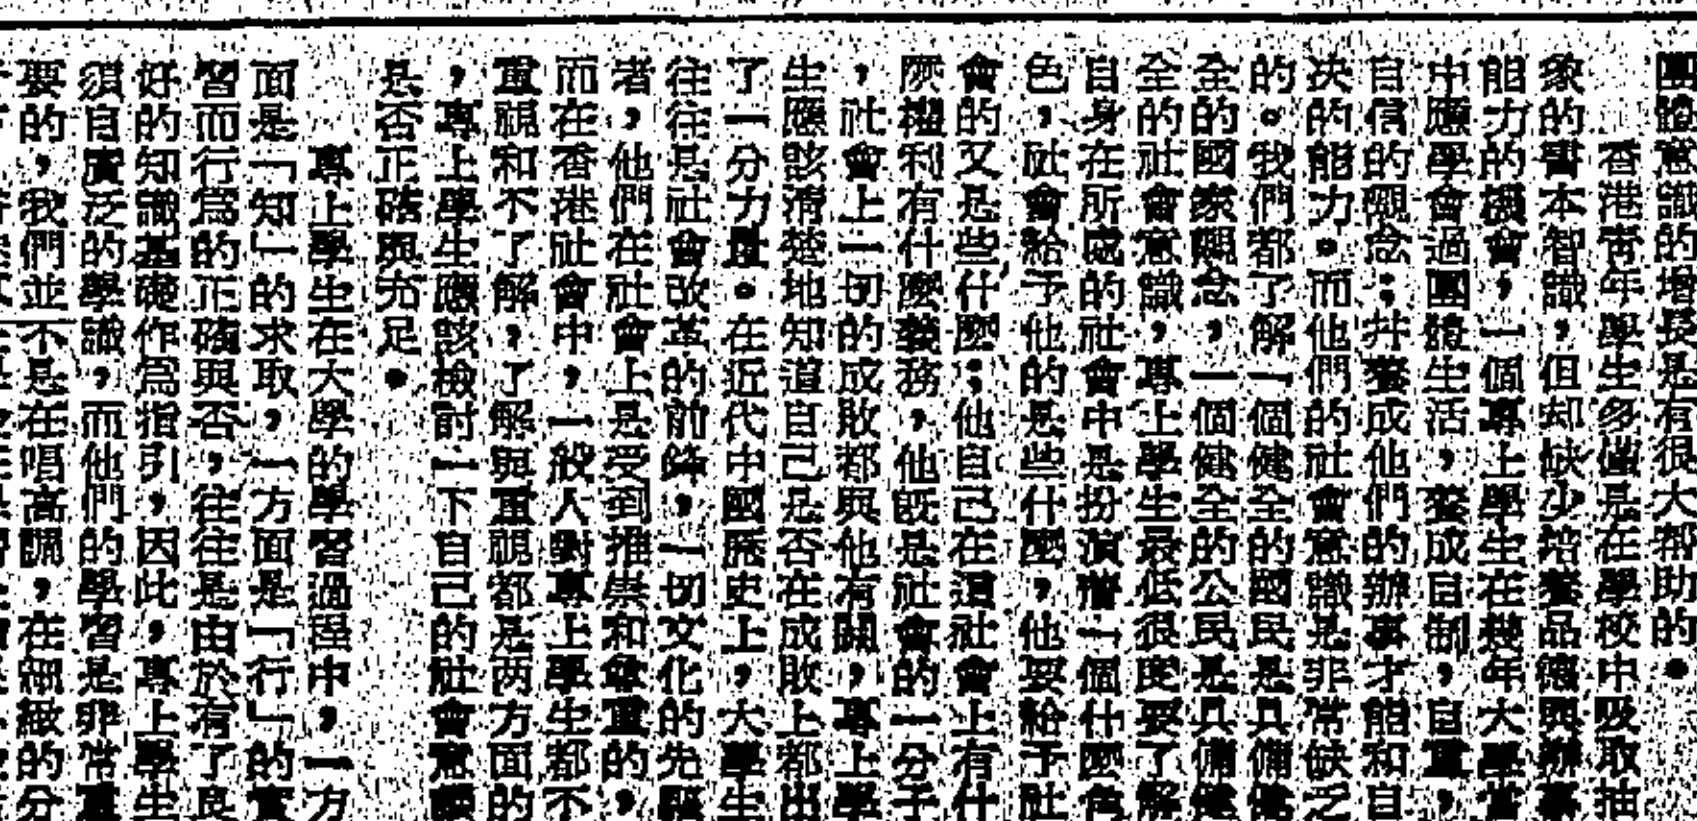 團體意識的增長是有很大都助的。
香港靑年學生多僅是在學校中吸取抽
象的書本智識，但却缺少培養品德與辦事
能力的機會，一個專上學生在幾年大學當
中應學會過團體生活，養成自制，自重，
自信的觀念；幷養成他們的辦事才能和自
决的能力。而他們的社會意識是非常缺乏
的。我們都了解一個健全的國民是具備健
全的國家觀念，一個健全的公民是具備健
全的社會意識，專上學生最低很度要了解
自身在所處的社會中是扮演着一個什麽角
色，社會給予他的是些什麽，他要給予社
會的又是些什麽；他自己在這社會上有什
麽權利有什麽義務，他旣是社會的一分子
，社會上一切的成敗都與他有關，專上學
生應該淸楚地知道自己是否在成敗上都出
了一分力量。在近代中國歷史上，大學生
往往是社會改革的前鋒，一切文化的先驅
者，他們在社會上是受到推崇和敬重的，
而在香港社會中，一般人對專上學生都不
重視和不了解，了解與重視都是两方面的
，專上學生應該檢討一下自己的社會意識
是否正確與充足。
專上學生在大學的學習過程中，一方
面是「知」的求取，一方面是「行」的實
習而行爲的正確與否，往往是由於有了良
好的知識基礎作爲指引，因此，專上學生
須自廣泛的學識，而他們的學習是非常重
要的，我們並不是在唱高調，在細緻的分